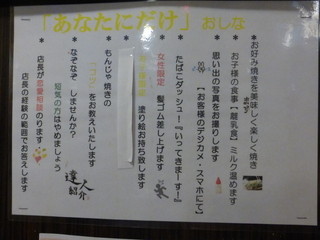 「あなたにだけ」おしながき
＊お好み焼きを美味しく楽しく焼きます
＊お子様の食事【離乳食】ミルク温めます
＊思い出の写真をお撮りします
【お客様のデジカメ・スマホにて】
＊たばこダッシュ！『いってきまーす！』
＊女性限定 髪ゴム差し上げます
塗り絵お持ち致します
＊もんじゃ焼きの
「コツ」をお教えいたします
＊なぞなぞ しませんか？
短気の方はやめましょう
達人紹介
＊店長が恋愛相談のります
店長の経験の範囲でお答えします